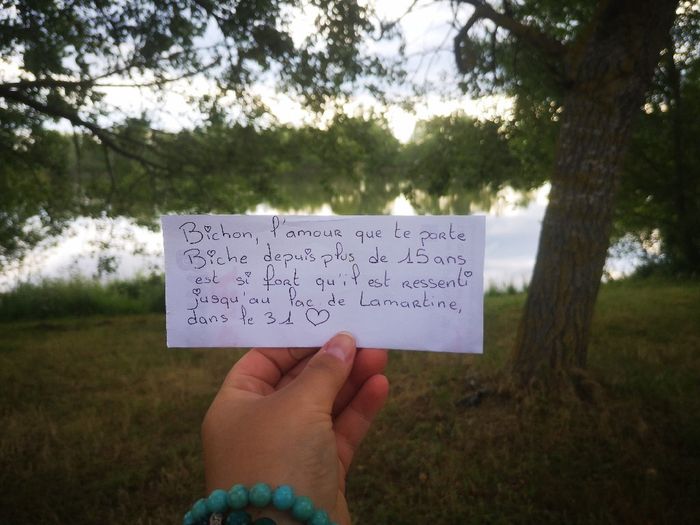 Bichon, l'amour que te porte
Biche depuis plus de 15 ans
est si fort qu'il est ressenti
jusqu'au lac de Lamartine,
dans le 31 ♡